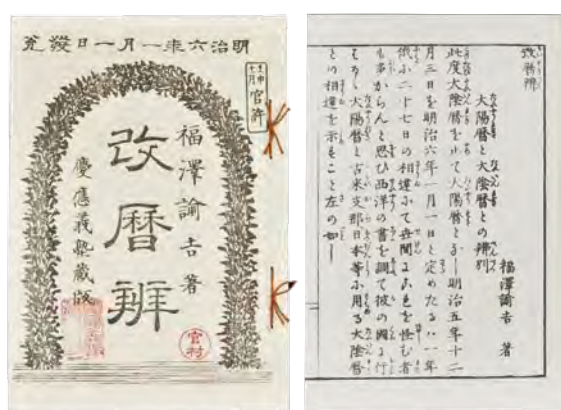 明治六年一月一日發兌
官許
福澤諭吉著
改暦辨
慶應義塾藏版
官村
改暦辨
福澤諭吉 著
大陽暦と大陰暦との辨別
此度大陰暦を止て大陽暦となし明治五年十二
月三日を明治六年一月一日と定めたるハ一年
俄に二十七日の相違にて世間にこれを怪む者
も多からんと思ひ西洋の書を調て彼の國に行
はるゝ大陽暦と古来支那日本等に用る大陰暦
との相違を示すこと左の如し